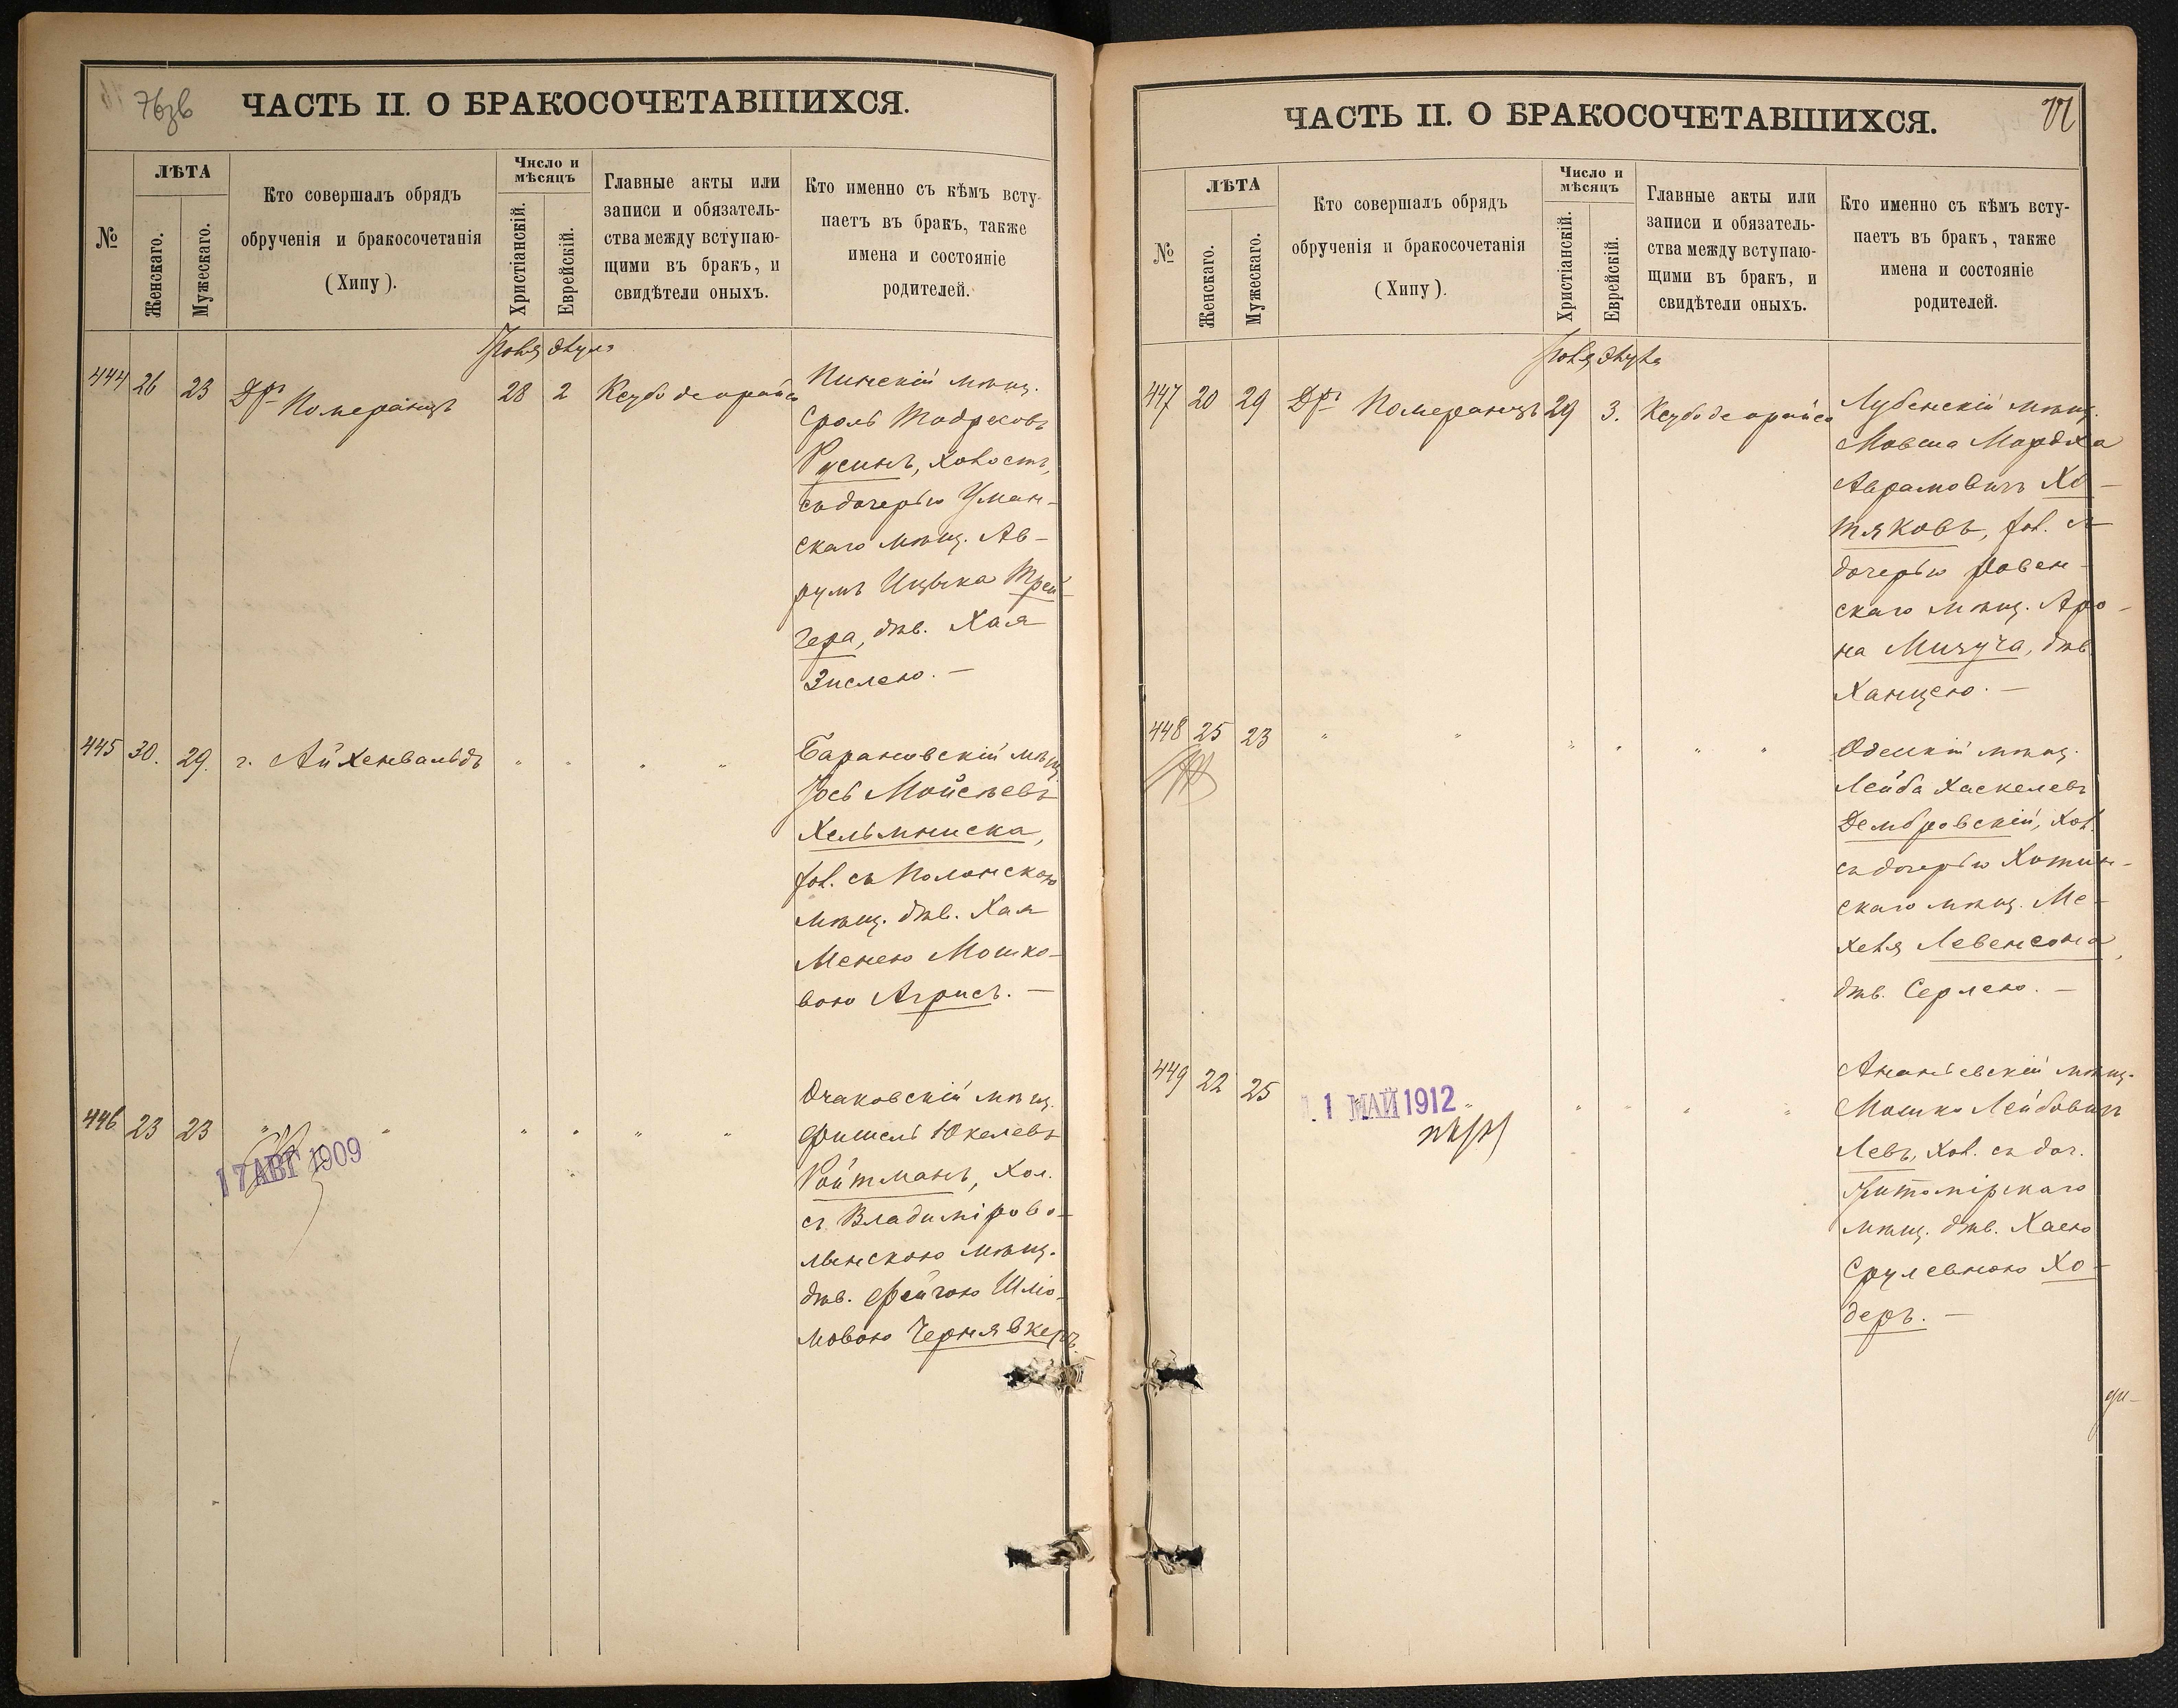 76зв
ЧАСТЬ II. О БРАКОСОЧЕТАВШИХСЯ.
№
ЛѢТА
Женскаго.
Мужескаго.
Кто совершалъ обрядъ
обрученія и бракосочетанія
(Хипу).
Число и
мѣсяцъ
Христіанскій.
Еврейскій.
Главные акты или
записи и обязатель-
ства между вступаю-
щими въ бракъ, и
свидѣтели оныхъ.
Кто именно съ кѣмъ всту-
паетъ въ бракъ, также
имена и состояніе
родителей.
444 26 23 Дръ Померанцъ 28 2 Ксубо деорайса
Пинскій мѣщ.
Сроль Тодресовъ
Русинъ, холост,
съ дочерью Уман-
скаго мѣщ. Ав-
румъ Ицька Трей-
гера, дѣв. Хая
Зислею. —
445 30. 29. г. Айхенвальдъ " " " "
Барановскій мѣщ.
Іось Мойсѣевъ
Хельминска,
хол. съ Полонскою
мѣщ. дѣв. Хая
Менею Мошко-
вою Агрисъ. —
446 23 23 " " " " " "
17 АВГ 1909
Очаковскій мѣщ.
Фишель Юкелевъ
Ройтманъ, хол.
съ Владиміровο-
лынскою мѣщ.
дѣв. Фейгою Шлио-
мовою Чернявкеръ
77
ЧАСТЬ II. О БРАКОСОЧЕТАВШИХСЯ.
№
ЛѢТА
Женскаго.
Мужескаго.
Кто совершалъ обрядъ
обрученія и бракосочетанія
(Хипу).
Число и
мѣсяцъ
Христіанскій.
Еврейскій.
Главные акты или
записи и обязатель-
ства между вступаю-
щими въ бракъ, и
свидѣтели оныхъ.
Кто именно съ кѣмъ всту-
паетъ въ бракъ, также
имена и состояніе
родителей.
447 20 29 Дръ Померанцъ 29 3. Ксубо деорайса
Лубенскій мѣщ.
Мовша Мордха
Аврамовичъ Хо-
тяковъ, хол. съ
дочерью Ровен-
скаго мѣщ. Аро-
на Мизуча, дѣв.
Ханцею. —
448 25 23 " " " " " "
Одесскій мѣщ.
Лейба Хаскелевъ
Дембровскій, хол.
съ дочерью Хотин-
скаго мѣщ. Ме-
хеля Левенсона,
дѣв. Серлею. —
449 22 25 " " " " "
1 МАЙ 1912
Ананьевскій мѣщ.
Мошко Лейбовичъ
Левъ, хол. съ доч.
Житомірскаго
мѣщ. дѣв. Хаею
Срулевною Хо-
деръ. —